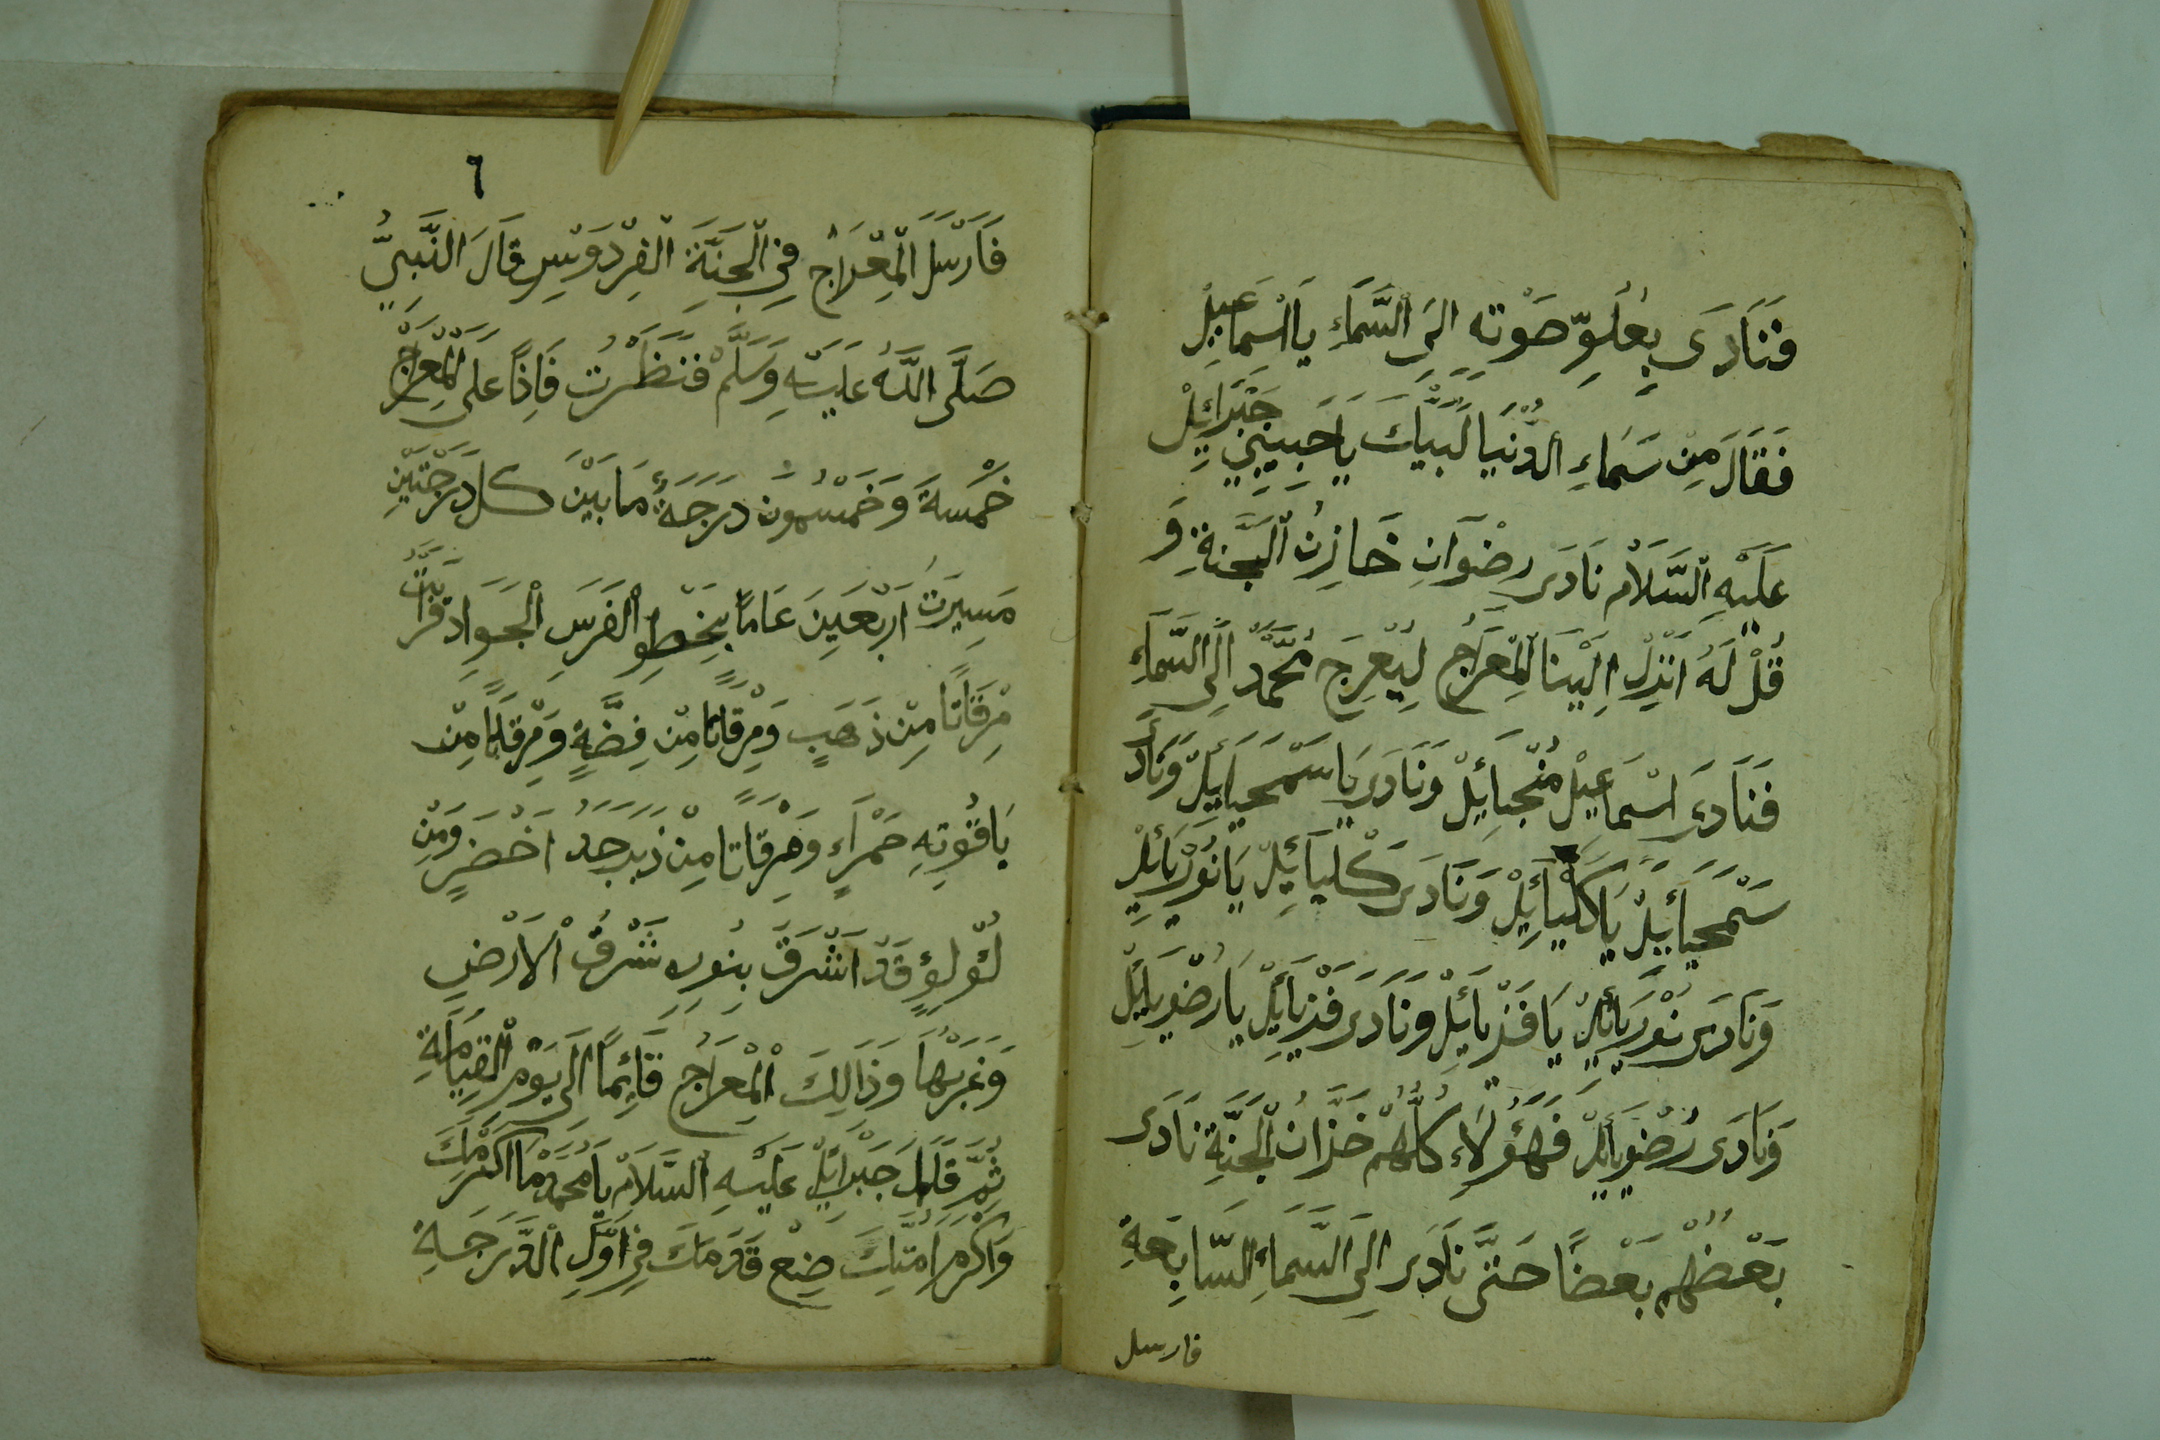 فَنَادَى بِعُلُوِّ صَوْتِهِ اِلَى السَّمَاءِ يَا اسْمَاعِيلُ
فَقَالَ مِنْ سَمَاءِ الدُّنْيَا لَبَّيْكَ يَا حَبِيبِي جَبْرَائِيلْ
عَلَيْهِ السَّلَامْ نَادَى رِضْوَانِ خَازِنُ الْجَنَّةِ وَ
قُلْ لَهُ اَنْزِلْ اِلَيْنَا الْمِعْرَاجُ لِيُعْرِجَ مُحَمَّدْ اِلَى السَّمَاءِ
فَنَادَى اسْمَاعِيلْ مُنْجِيَائِلْ وَنَادَى يَا سَمْحِيَائِيلْ وَنَادَى
سَمْحِيَائِيلْ يَا كَلْيَائِيلْ وَنَادَى كَلْيَائِيلْ يَا نُوْرِيَائِلْ
وَنَادَى نُوْرِيَائِلْ يَا فَنْرِيَائِلْ وَنَادَى فَنْرِيَائِلْ يَا رُضْوِيَائِلْ
وَنَادَى رُضْوِيَائِلْ فَهَؤُلَاءِ كُلُّهُمْ خَزَّانُ الْجَنَّةِ نَادَى
بَعْضُهُمْ بَعْضًا حَتَّى نَادَى اِلَى السَّمَاءِ السَّابِعَةِ
فارسل
٦
فَاَرْسَلَ الْمِعْرَاجُ فِي الْجَنَّةِ الْفِرْدَوْسِ قَالَ النَّبِيُّ
صَلَّى اللَّهُ عَلَيْهِ وَسَلَّمْ فَنَظَرْتُ فَاِذًا عَلَى الْمِعْرَاجْ
خَمْسَةَ وَخَمْسُونَ دَرَجَةً مَا بَيْنَ كُلِّ دَرَجَتَيْنِ
مَسِيرَتُ اَرْبَعِينَ عَامًا بِخَطْوِ الْفَرَسِ الْجَوَادِ فَرَاَيْتُ
مِرْقَاتًا مِنْ ذَهَبٍ وَمِرْقَاتًا مِنْ فِضَّةٍ وَمِرْقَاتًا مِنْ
يَاقُوتِهِ حَمْرَاءٍ وَمِرْقَاتًا مِنْ زَبَرْجَدُ اَخْضَرٍ وَمِنْ
لُؤْلُؤٍ قَدْ اَشْرَقَ بِنُورِهِ شَرْقُ الْاَرْضِ
وَغَرْبُهَا وَذَالِكَ الْمِعْرَاجُ قَائِمًا اِلَى يَوْمِ الْقِيَامَةِ
ثُمَّ قَالَ جَبْرَائِلْ عَلَيْهِ السَّلَامْ يَا مُحَمَّدْ مَا اَكْرَمَكَ
وَاَكْرَمَ اُمَّتِكَ ضِعْ قَدَمَكَ فِي اَوَّلِ الدَّرَجَةِ